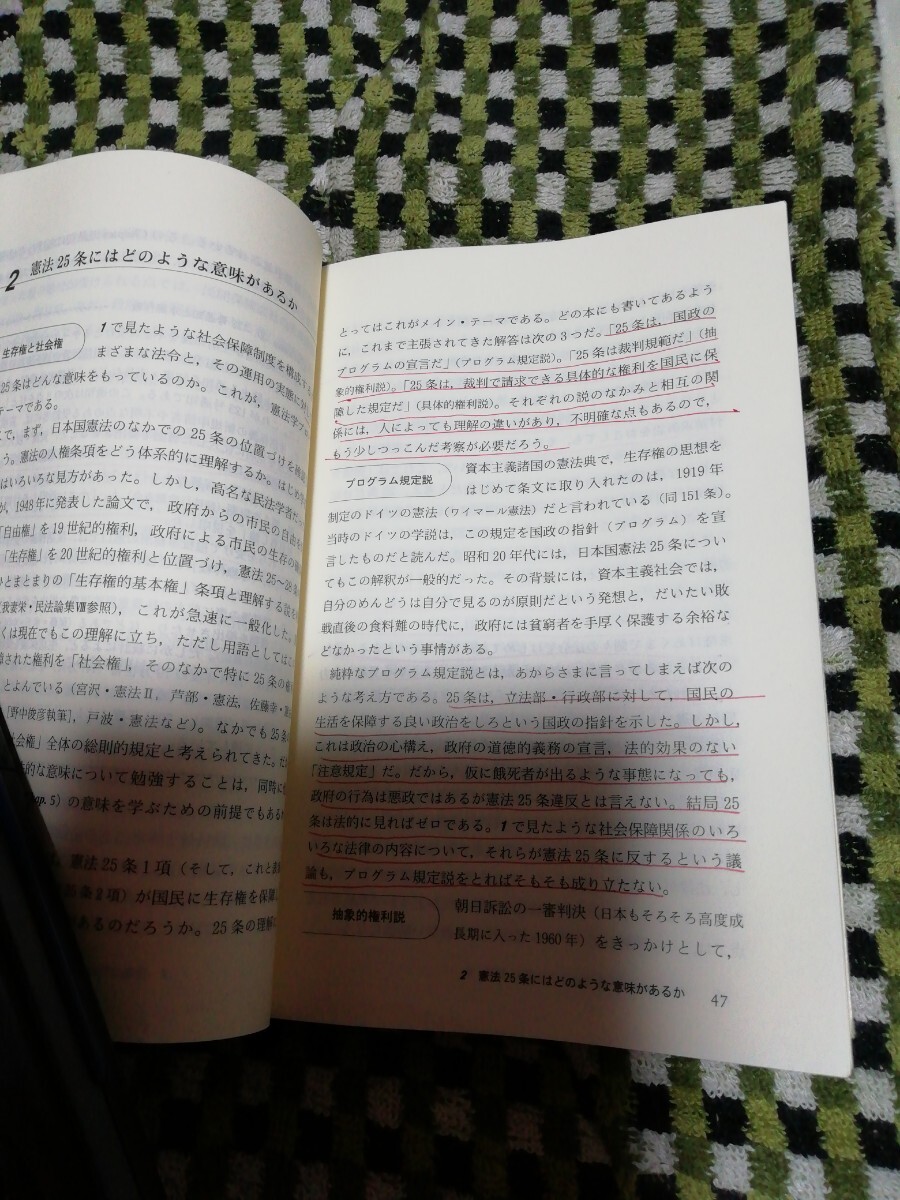 2 憲法25条にはどのような意味があるか
生存権と社会権
1で見たような社会保障制度を構成する
まざまな法令と，その運用の実態に対
25条はどんな意味をもっているのか。これが，憲法学
テーマである。
で，まず，日本国憲法のなかでの25条の位置づけを
う。憲法の人権条項をどう体系的に理解するか。はじめ
はいろいろな見方があった。しかし，高名な民法学者
が，1948年に発表した論文で，政府からの市民の自由を
「自由権」を19世紀的権利，政府による市民の生存の
「生存権」を20世紀的権利と位置づけ，憲法25～28条
ひとまとまりの「生存権的基本権」条項と理解する説を
我妻栄・民法論集Ⅷ参照），これが急速に一般化した。
くは現在でもこの理解に立ち，ただし用語としては
された権利を「社会権」，そのなかで特に25条の
とよんでいる（宮沢・憲法Ⅱ，芦部・憲法，佐藤幸・
［野中俊彦執筆］，戸波・憲法など）。なかでも25条
会権」全体の総則的規定と考えられてきた。
的な意味について勉強することは，同時に
pp. 5）の意味を学ぶための前提でもある
憲法25条1項（そして，これと
25条2項）が国民に生存権を保障
あるのだろうか。25条の理解
とってはこれがメイン・テーマである。どの本にも書いてあるよう
に，これまで主張されてきた解答は次の3つだ。「25条は，国政の
プログラムの宣言だ」（プログラム規定説）。「25条は裁判規範だ」（抽
象的権利説）。「25条は，裁判で請求できる具体的な権利を国民に保
障した規定だ」（具体的権利説）。それぞれの説のなかみと相互の関
係には，人によっても理解の違いがあり，不明確な点もあるので，
もう少しつっこんだ考察が必要だろう。
プログラム規定説
資本主義諸国の憲法典で，生存権の思想を
はじめて条文に取り入れたのは，1919年
制定のドイツの憲法（ワイマール憲法）だと言われている（同151条）。
当時のドイツの学説は，この規定を国政の指針（プログラム）を宣
言したものだと読んだ。昭和20年代には，日本国憲法25条につい
てもこの解釈が一般的だった。その背景には，資本主義社会では，
自分のめんどうは自分で見るのが原則だという発想と，だいたい敗
戦直後の食料難の時代に，政府には貧窮者を手厚く保護する余裕な
どなかったという事情がある。
純粋なプログラム規定説とは，あからさまに言ってしまえば次の
ような考え方である。25条は，立法部・行政部に対して，国民の
生活を保障する良い政治をしろという国政の指針を示した。しかし，
これは政治の心構え，政府の道徳的義務の宣言，法的効果のない
「注意規定」だ。だから，仮に餓死者が出るような事態になっても，
政府の行為は悪政ではあるが憲法25条違反とは言えない。結局25
条は法的に見ればゼロである。1で見たような社会保障関係のいろ
いろな法律の内容について，それらが憲法25条に反するという議
論も，プログラム規定説をとればそもそも成り立たない。
抽象的権利説
朝日訴訟の一審判決（日本もそろそろ高度成
長期に入った1960年）をきっかけとして，
2 憲法25条にはどのような意味があるか 47